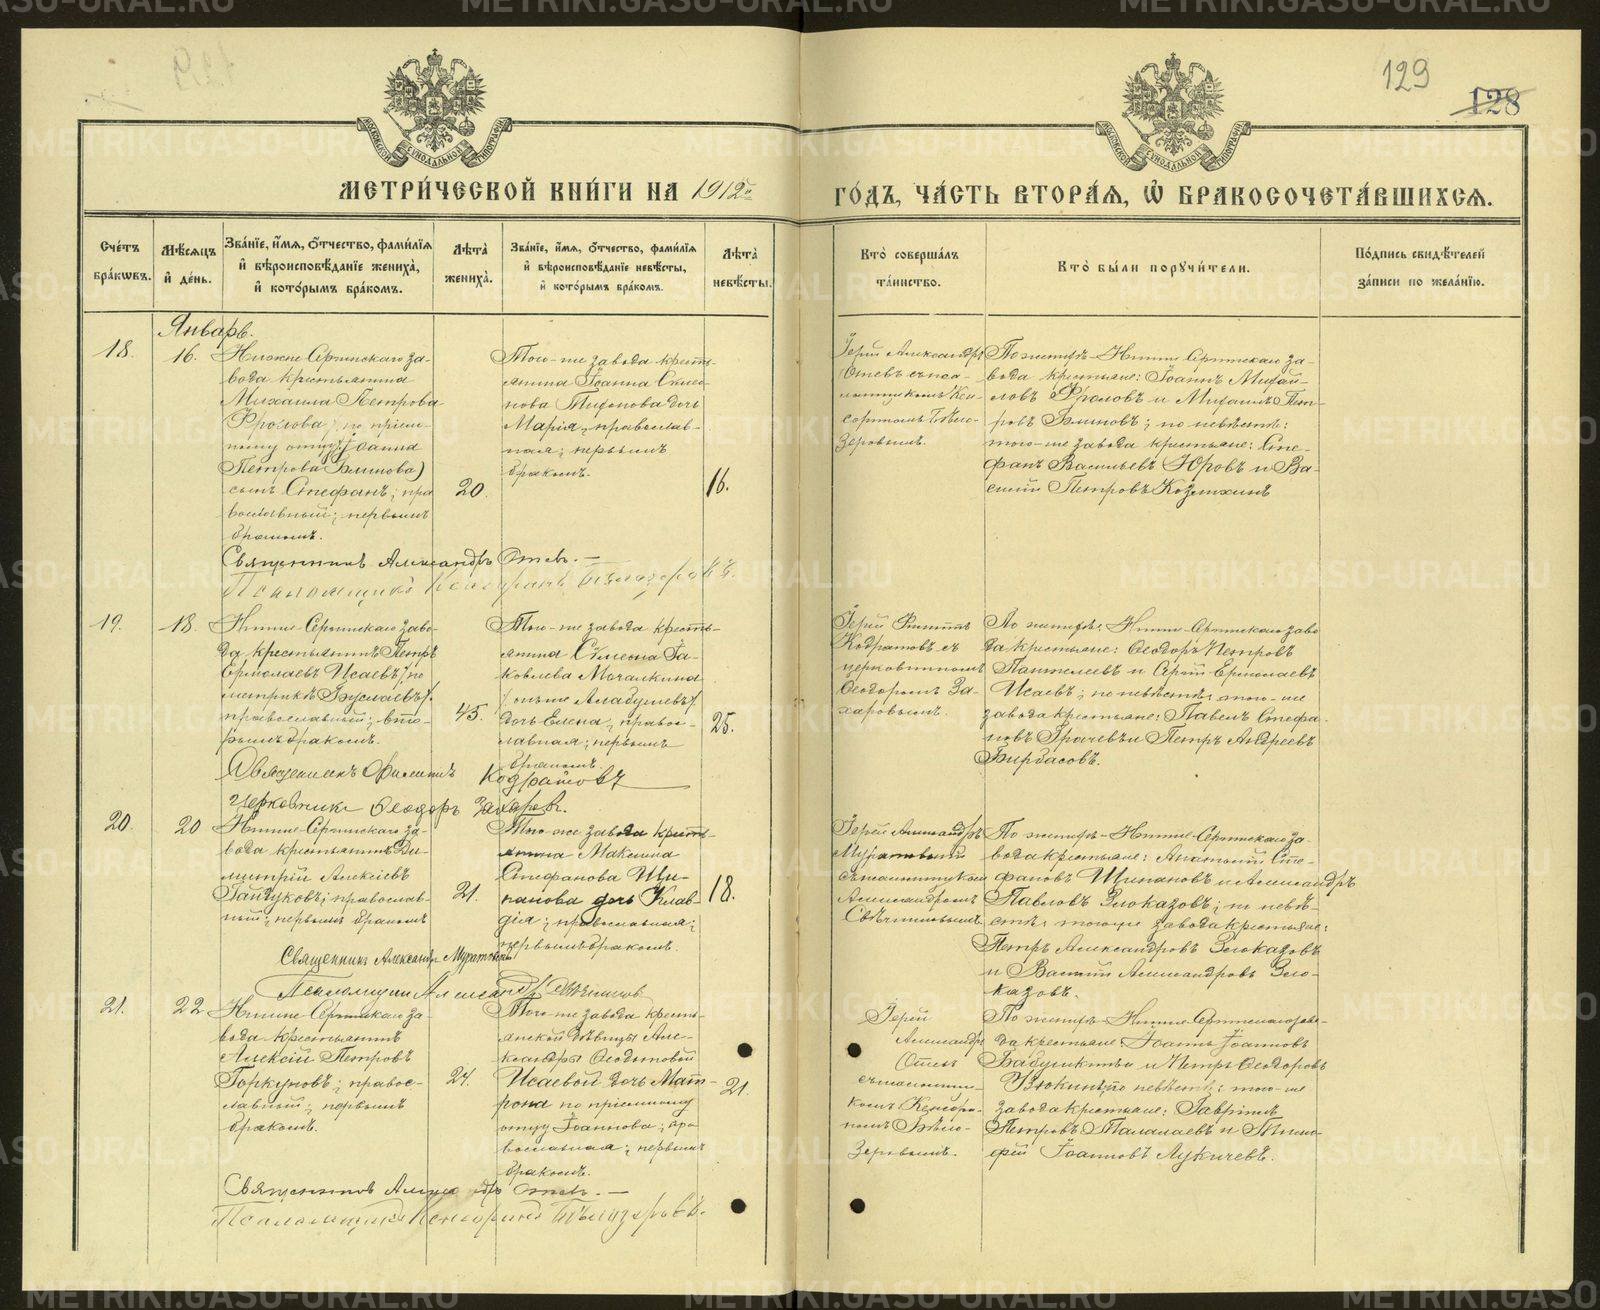 129
128
МЕТРИ́ЧЕСКОЙ КНИ́ГИ НА 1912й
ГО́ДЪ, ЧА́СТЬ ВТОРА́Я, Ѡ҆ БРАКОСОЧЕТА́ВШИХСЯ.
Сче́тъ бра́кѡвъ.
Мѣ́сяцъ и҆ де́нь.
Зва́нїе, и҆́мя, ѻ҆́тчество, фами́лїя
и҆ вѣроисповѣ́данїе жениха̀,
и҆ кото́рымъ бра́комъ.
Лѣ́та̀ жениха̀.
Зва́нїе, и҆́мя, ѻ҆́тчество, фами́лїя
и҆ вѣроисповѣ́данїе невѣ́сты,
и҆ кото́рымъ бра́комъ.
Лѣ́та̀ невѣ́сты.
Кто̀ соверша́лъ
та́инство.
Кто̀ бы́ли поручи́тели.
По́дпись свидѣ́телей
за́писи по жела́нїю.
Январь.
18.
16.
Нижне-Сергинскаго за-
вода крестьянина
Михаила Петрова
Фролова, по прием-
ному отцу Іоанна
Петрова Блинова)
сынъ Стефанъ; пра
вославный; первымъ
бракомъ.
20.
Того-же завода крест-
янина Іоанна
Тихонова дочь
Марія; православ-
ная; первымъ
бракомъ.
16.
Іерей Александръ
Отевъ съ пса-
ломщикомъ Кен-
сориномъ Бѣло-
зеровымъ.
По женихѣ-Нижне Сергинскаго за-
вода крестьяне: Іоаннъ Михай-
ловъ Фроловъ и Михаилъ Пет-
ровъ Блиновъ; по невѣстѣ:
того-же завода крестьяне: Сте-
фанъ Васильевъ Юровъ и Ва-
силий Петровъ
Священникъ Александръ Отевъ. —
Псаломщикъ Кенсоринъ Бѣлозеровъ.
19.
18.
Нижне-Сергинскаго заво-
да крестьянинъ Петръ
Ермолаевъ Исаевъ /по
метрикѣ Буслаевъ/;
православный; вто-
рымъ бракомъ.
45.
Того-же завода кресть-
янина Сѵмеона Іа-
ковлева Мочалкина
/ онъ же Алабушевъ/
дочь Елена; право-
славная; первымъ
бракомъ.
25.
Іерей Филиппъ
Кодратовъ съ
церковникомъ
Ѳеодоромъ За-
харовымъ.
По женихѣ: Нижне-Сергинскаго заво
да крестьяне: Ѳеодоръ Петровъ
Пантелеевъ и Сергій Ермолаевъ
Исаевъ; по невѣстѣ: того-же
завода крестьяне: Павелъ Стефа-
новъ Грачевъ и Петръ Андреевъ
Бирбасовъ.
Священникъ Филиппъ Кодратовъ
Церковникъ Ѳеодоръ Захаровъ.
20.
20
Нижне-Сергинскаго за-
вода крестьянинъ Ди-
митрій Алексіевъ
Гайдуковъ; православ-
ный; первымъ бракомъ
21.
Того же завода кресть-
янина Максима
Стефанова Щи-
панова дочь Клав-
дія; православная;
первымъ бракомъ.
18.
Іерей Александръ
Муратовъ
съ псаломщикомъ
Александромъ
Свѣчниковымъ.
По женихѣ-Нижне-Сергинскаго за-
вода крестьяне: Анатолій Сте-
фановъ Щипановъ и Александръ
Павловъ Злоказовъ; по невѣ-
стѣ: того-же завода крестьяне:
Петръ Александровъ Злоказовъ
и Василій Александровъ Зло-
казовъ.
Священникъ Александръ Муратовъ
Псаломщикъ Александръ Свѣчниковъ
21.
22
Нижне-Сергинскаго за-
вода крестьянинъ
Алексій Петровъ
Горкуновъ; правос-
лавный; первымъ
бракомъ.
24.
Того-же завода кресть-
янской дѣвицы Але-
ксандры Ѳеодотовой
Исаевой дочь Мат-
рона по пріемному
отцу Іоаннова; пра-
вославная; первымъ
бракомъ.
21.
Іерей
Александръ
Отевъ
съ псаломщи-
комъ Кенсори-
номъ Бѣло-
зеровымъ.
По женихѣ-Нижне-Сергинскаго заво-
да крестьяне: Іоаннъ Іоанновъ
Бабушкинъ и Петръ Ѳеодоровъ
Зюкинъ; по невѣстѣ: того-же
завода крестьяне: Гавріилъ
Петровъ Талалаевъ и Тимо-
фей Іоанновъ Лукичевъ.
Священникъ Александръ Отевъ. —
Псаломщикъ Кенсоринъ Бѣлозеровъ.
METRIKI.GASO-URAL.RU